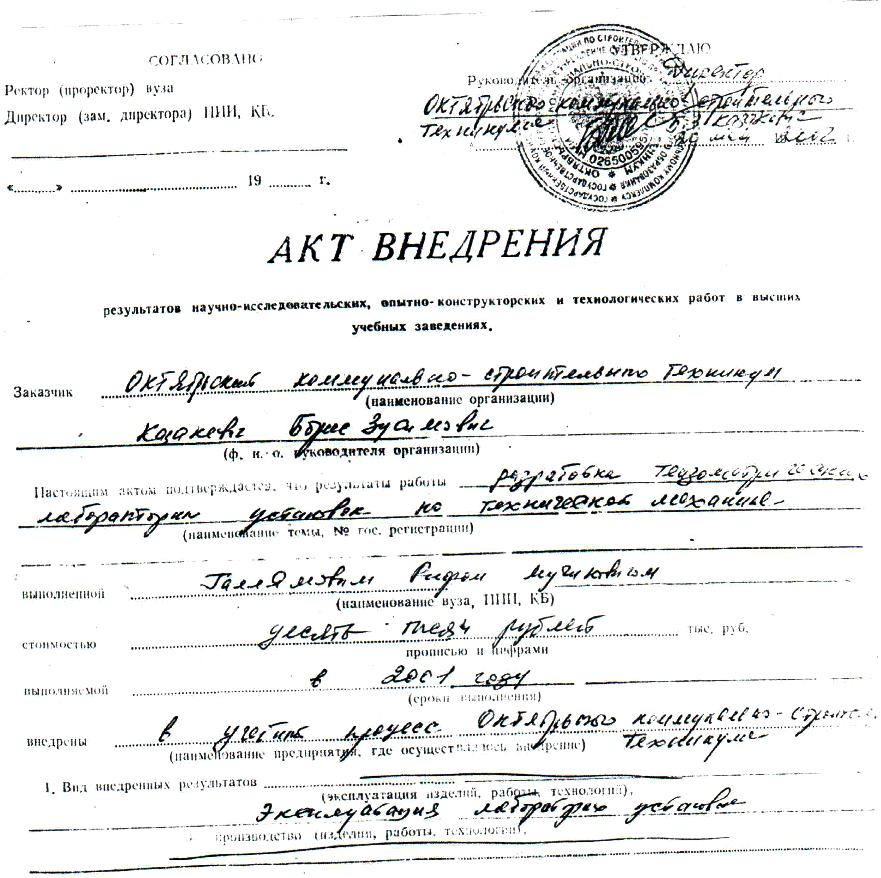 СОГЛАСОВАНО
Ректор (проректор) вуза
Директор (зам. директора) НИИ, КБ.
«..........» .......... 19 .......... г.
УТВЕРЖДАЮ
Руководитель организации Директор
Октябрьского коммунально-строительного
техникума
2002 г.
АКТ ВНЕДРЕНИЯ
результатов научно-исследовательских, опытно-конструкторских и технологических работ в высших
учебных заведениях.
Заказчик Октябрьский коммунально-строительный техникум
(наименование организации)
Борис
(ф. и. о. руководителя организации)
Настоящим актом подтверждается, что результаты работы разработка
лабораторных установок по технической механике
(наименование темы, № гос. регистрации)
выполненной Галлямовым
(наименование вуза, НИИ, КБ)
стоимостью десять тысяч рублей тыс. руб.
прописью и цифрами
выполняемой в 2001 году
(сроки выполнения)
внедрены в учебный процесс Октябрьского коммунально-строител.
техникума
(наименование предприятия, где осуществлялось внедрение)
1. Вид внедренных результатов
(эксплуатация изделий, работы, технологий),
Эксплуатация лабораторных установок
производство (изделия, работы, технологии),